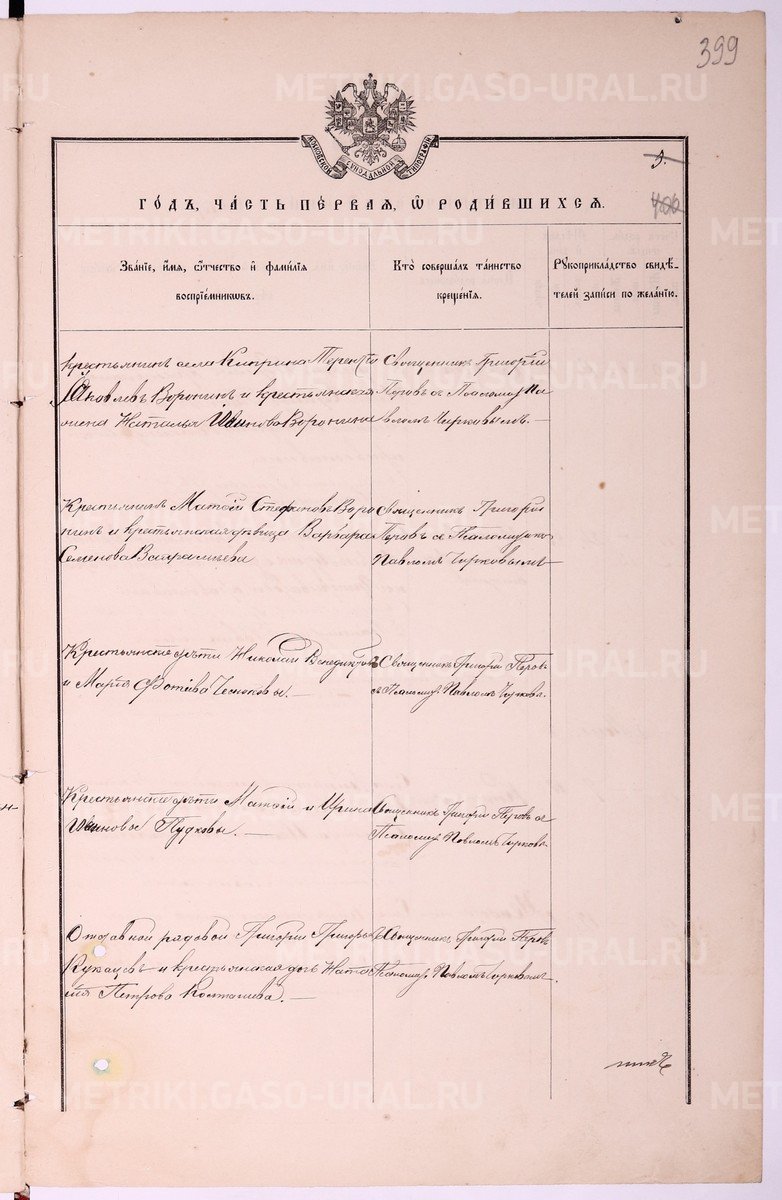 399
МОСКОВСКОЙ СѴНОДАЛЬНОЙ ТИПОГРАФІИ
3.
400
ГО́ДЪ, ЧА́СТЬ ПЕ́РВАЯ, Ѡ РОДИ́ВШИХСЯ.
Зва́нїе, и҆́мя, ѻ҆́тчество и҆ фами́лїя
воспрїе́мникѡвъ.
Кто̀ соверша́лъ та́инство
креще́нїя.
Рꙋкоприкла́дство свидѣ́-
телей за́писи по жела́нїю.
Крестьянинъ села Киприна Терентій
Яковлевъ Воронинъ и крестьянская
жена Наталья Иванова Воронина
Священникъ Григорій
Перовъ съ Пономар. Па
вломъ Чирковымъ.
Крестьянинъ Матѳій Стефановъ Воро
нинъ и крестьянская дѣвица Варвара
Семенова
Священникъ Григорій
Перовъ съ Пономаремъ
Павломъ Чирковымъ
Крестьянскіе дѣти Николай Венедиктовъ
и Марія Фотіева Чесноковы.
Священникъ Григорій Перовъ
съ Пономар. Павломъ Чирков.
Крестьянскіе дѣти Матѳій и Ирина
Ивановы Пудковы.
Священникъ Григорій Перовъ съ
Пономар. Павломъ Чирков.
Отставной рядовой Григорій Григорьев
и крестьянская дочь Ната
лія Петрова
Священникъ Григорій Перовъ
Пономар. Павломъ Чирковымъ.
METRIKI.GASO-URAL.RU